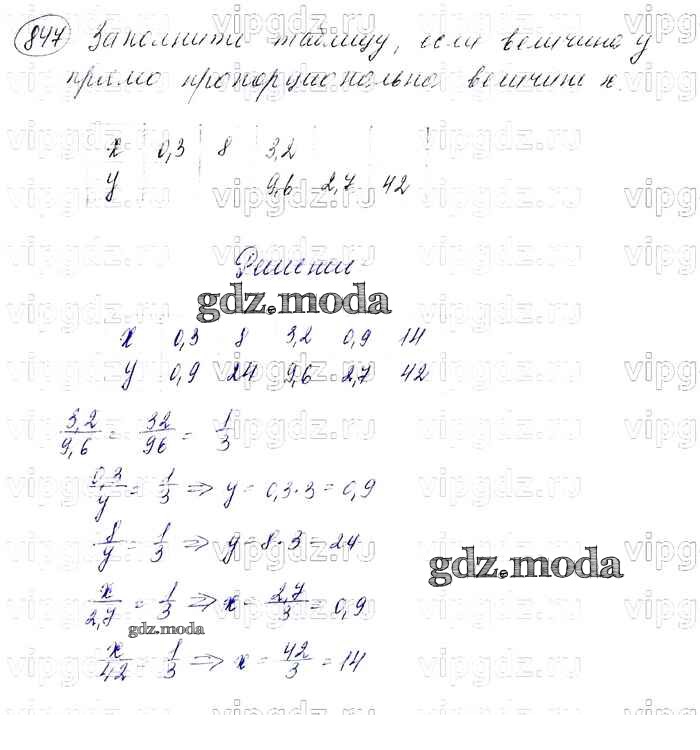 847 Заполните таблицу, если величина y
прямо пропорциональна величине x.
x 0,3 8 3,2
y 9,6 2,7 42
Решение
gdz.moda
x 0,3 8 3,2 0,9 14
y 0,9 24 9,6 2,7 42
3,2/9,6 = 32/96 = 1/3
0,3/y = 1/3 => y = 0,3·3 = 0,9
8/y = 1/3 => y = 8·3 = 24
gdz.moda
x/2,7 = 1/3 => x = 2,7/3 = 0,9
gdz.moda
x/42 = 1/3 => x = 42/3 = 14
vipgdz.ru